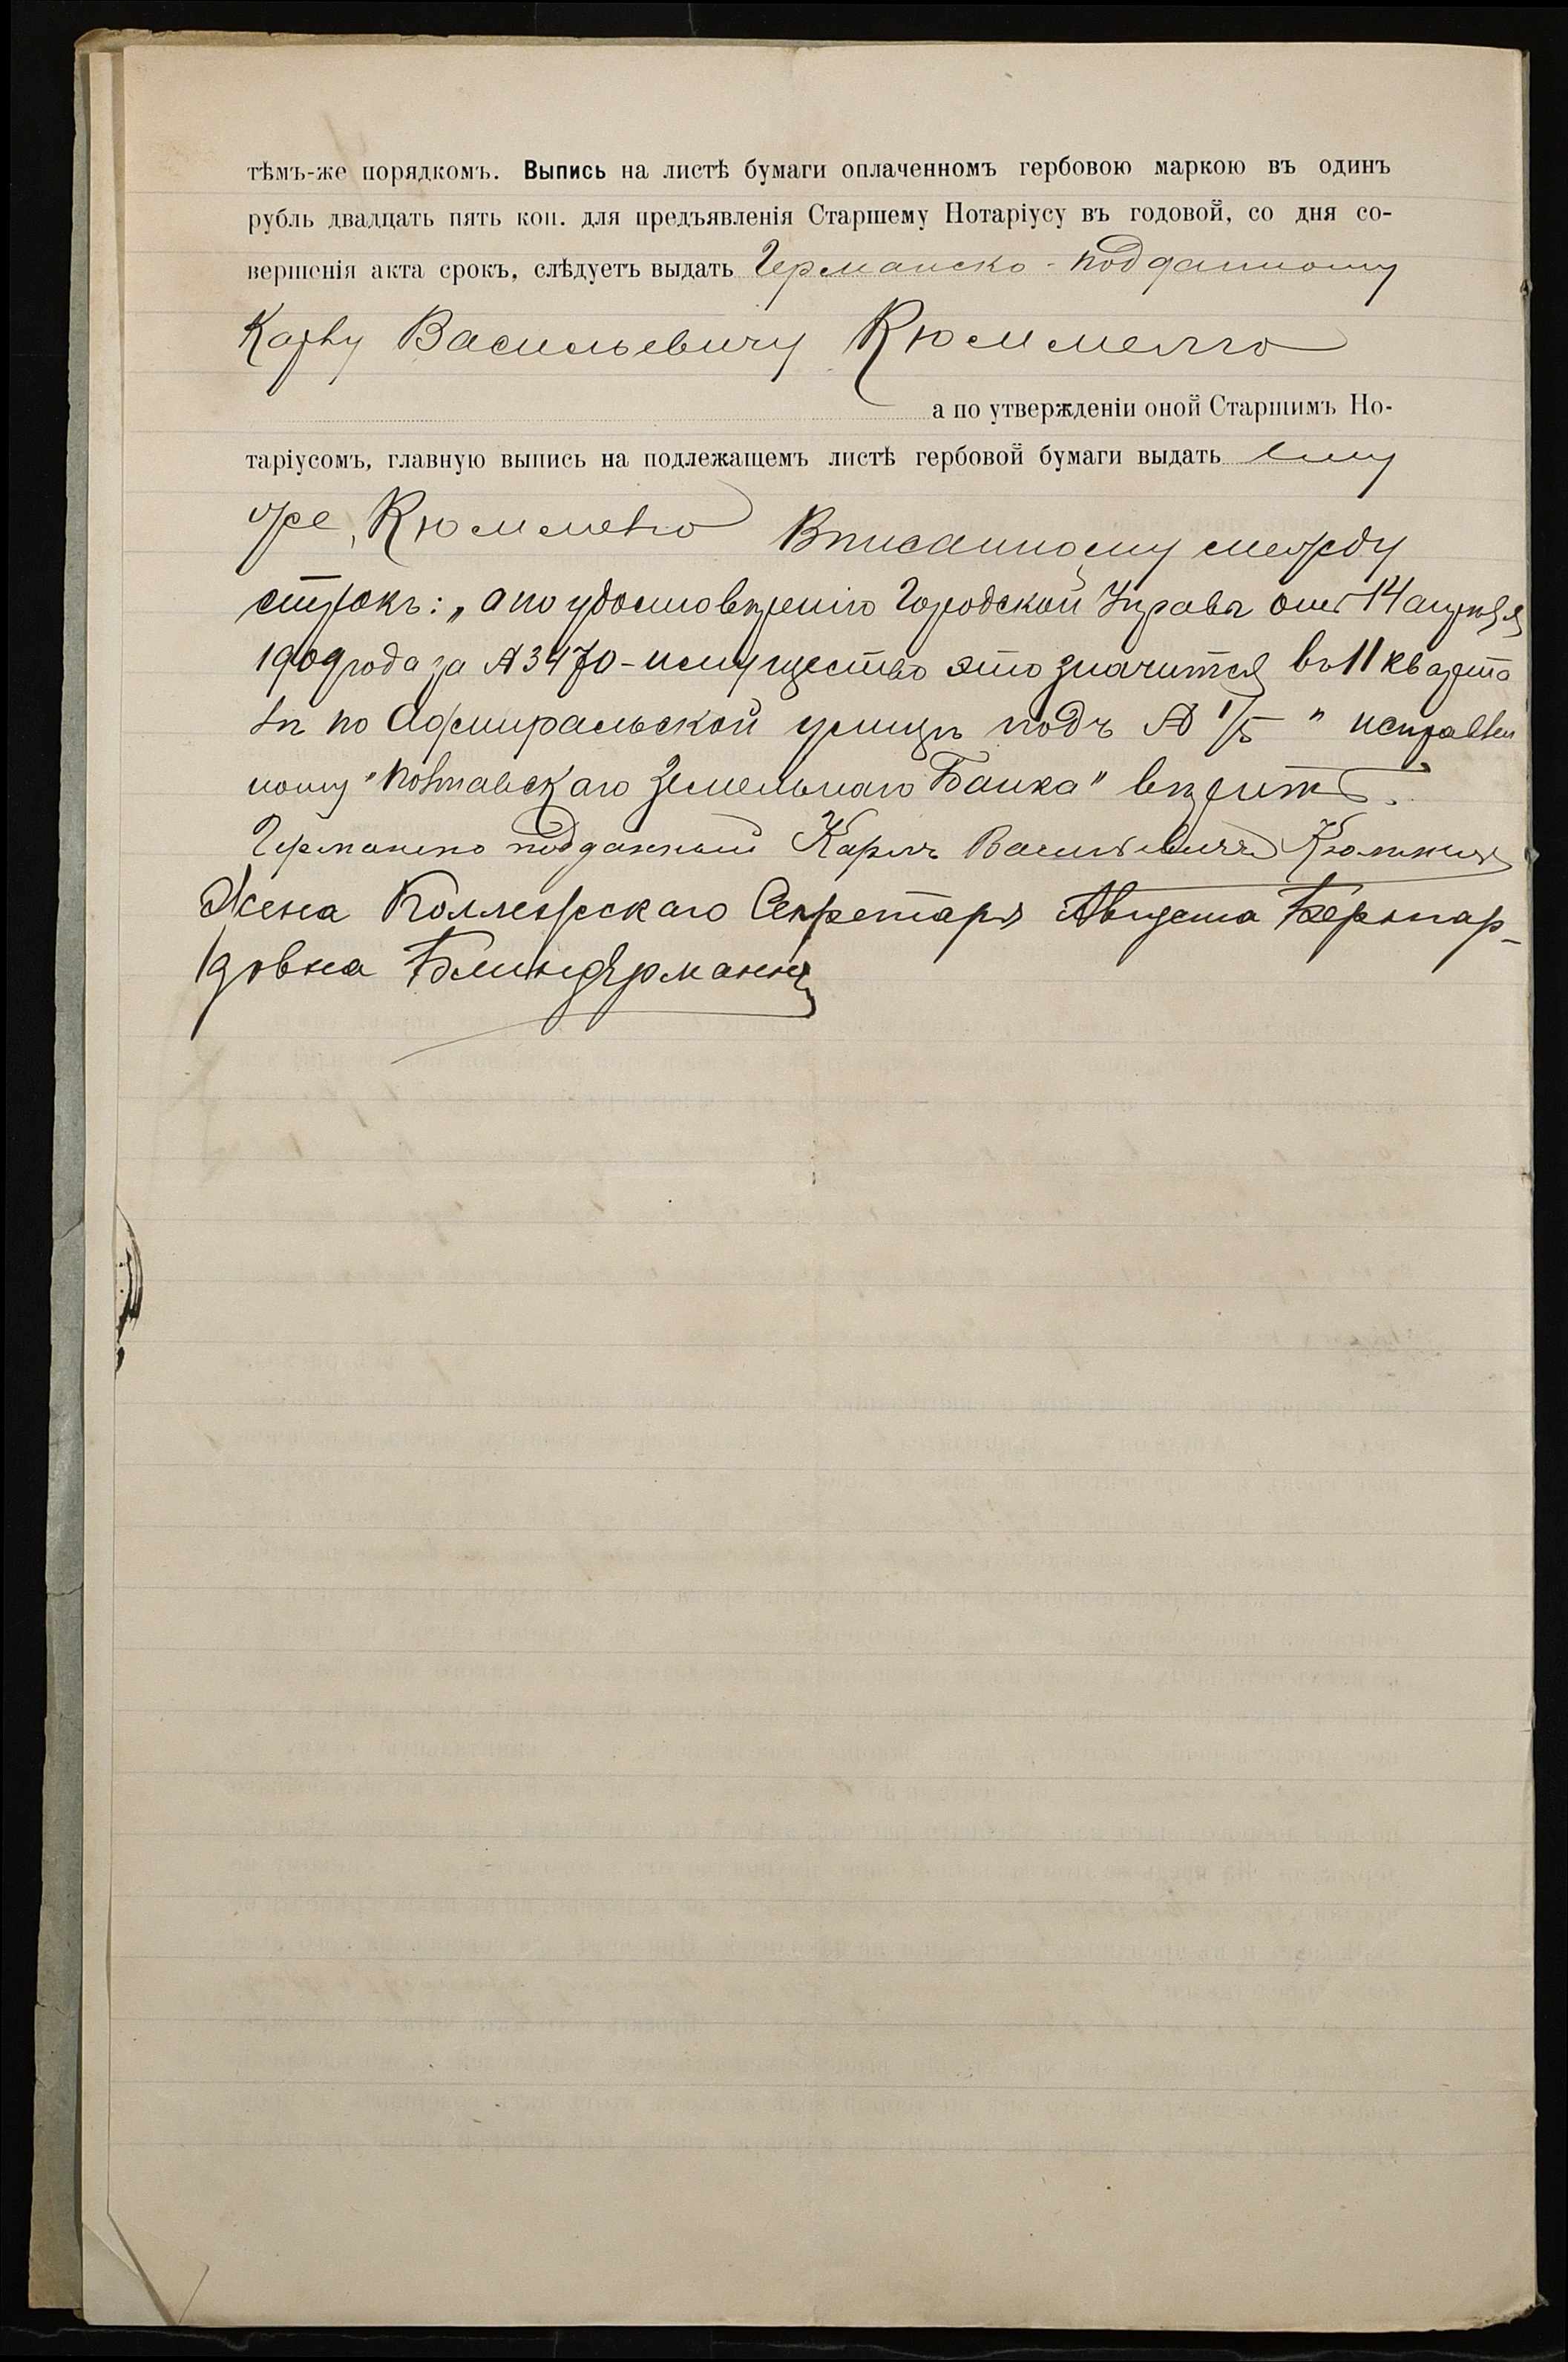 тѣмъ-же порядкомъ. Выпись на листѣ бумаги оплаченномъ гербовою маркою въ одинъ
рубль двадцать пять коп. для предъявленія Старшему Нотаріусу въ годовой, со дня со-
вершенія акта срокъ, слѣдуетъ выдать Германско-подданному
Карлу Васильевичу Кюммелю
а по утвержденіи оной Старшимъ Но-
таріусомъ, главную выпись на подлежащемъ листѣ гербовой бумаги выдать ему
же, Кюммелю Вписанному между
строкъ: „а по удостовѣренію Городской Управы отъ 14 апрѣля
1909 года за № 3470 - имущество это значится въ 11 кварта
лѣ по Адмиральской улицѣ подъ № 1/5 " исправлен
ному "Полтавскаго Земельнаго Банка" вѣрить.
Германско подданный Карлъ Васильевичъ Кюммель
Жена Коллежскаго Секретаря Августа Бернар-
довна Блиндерманнъ